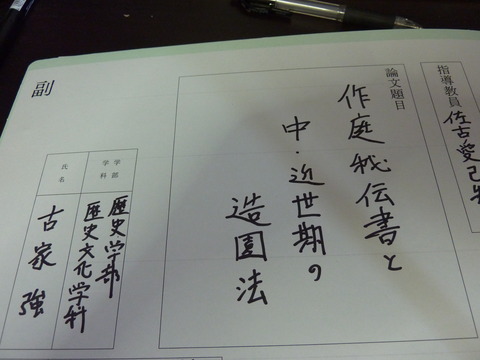 指導教員
佐古愛己
論文題目
作庭秘伝書と
中・近世期の
造園法
副
学部
学科
歴史学部
歴史文化学科
氏名
古家強